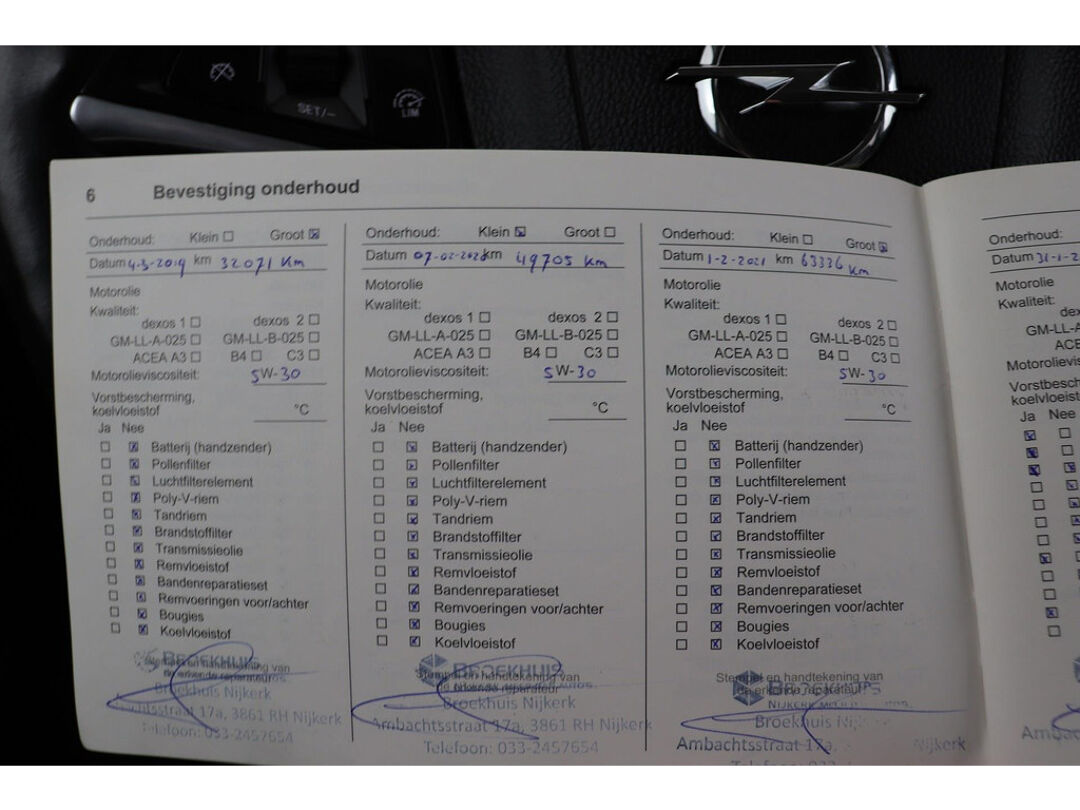 SET/–
LIM
6 Bevestiging onderhoud
Onderhoud: Klein Groot
Datum 4-3-2019 km 32071 km
Motorolie
Kwaliteit:
dexos 1 dexos 2
GM-LL-A-025 GM-LL-B-025
ACEA A3 B4 C3
Motorolieviscositeit: 5W-30
Vorstbescherming,
koelvloeistof °C
Ja Nee
Batterij (handzender)
Pollenfilter
Luchtfilterelement
Poly-V-riem
Tandriem
Brandstoffilter
Transmissieolie
Remvloeistof
Bandenreparatieset
Remvoeringen voor/achter
Bougies
Koelvloeistof
Stempel en handtekening van
de erkende reparateur
BROEKHUIS
Broekhuis Nijkerk
Ambachtsstraat 17a, 3861 RH Nijkerk
Telefoon: 033-2457654
Onderhoud: Klein Groot
Datum 07-02-2020 km 49705 km
Motorolie
Kwaliteit:
dexos 1 dexos 2
GM-LL-A-025 GM-LL-B-025
ACEA A3 B4 C3
Motorolieviscositeit: 5W-30
Vorstbescherming,
koelvloeistof °C
Ja Nee
Batterij (handzender)
Pollenfilter
Luchtfilterelement
Poly-V-riem
Tandriem
Brandstoffilter
Transmissieolie
Remvloeistof
Bandenreparatieset
Remvoeringen voor/achter
Bougies
Koelvloeistof
BROEKHUIS
Stempel en handtekening van
de erkende reparateur
Broekhuis Nijkerk
Ambachtsstraat 17a, 3861 RH Nijkerk
Telefoon: 033-2457654
Onderhoud: Klein Groot
Datum 1-2-2021 km 63336 km
Motorolie
Kwaliteit:
dexos 1 dexos 2
GM-LL-A-025 GM-LL-B-025
ACEA A3 B4 C3
Motorolieviscositeit: 5W-30
Vorstbescherming,
koelvloeistof °C
Ja Nee
Batterij (handzender)
Pollenfilter
Luchtfilterelement
Poly-V-riem
Tandriem
Brandstoffilter
Transmissieolie
Remvloeistof
Bandenreparatieset
Remvoeringen voor/achter
Bougies
Koelvloeistof
Stempel en handtekening van
de erkende reparateur
Broekhuis
Ambachtsstraat 17a, Nijkerk
Onderhoud:
Datum 31-1-2
Motorolie
Kwaliteit:
dex
GM-LL-A
ACE
Motorolievis
Vorstbesch
koelvloeist
Ja Nee
Amba